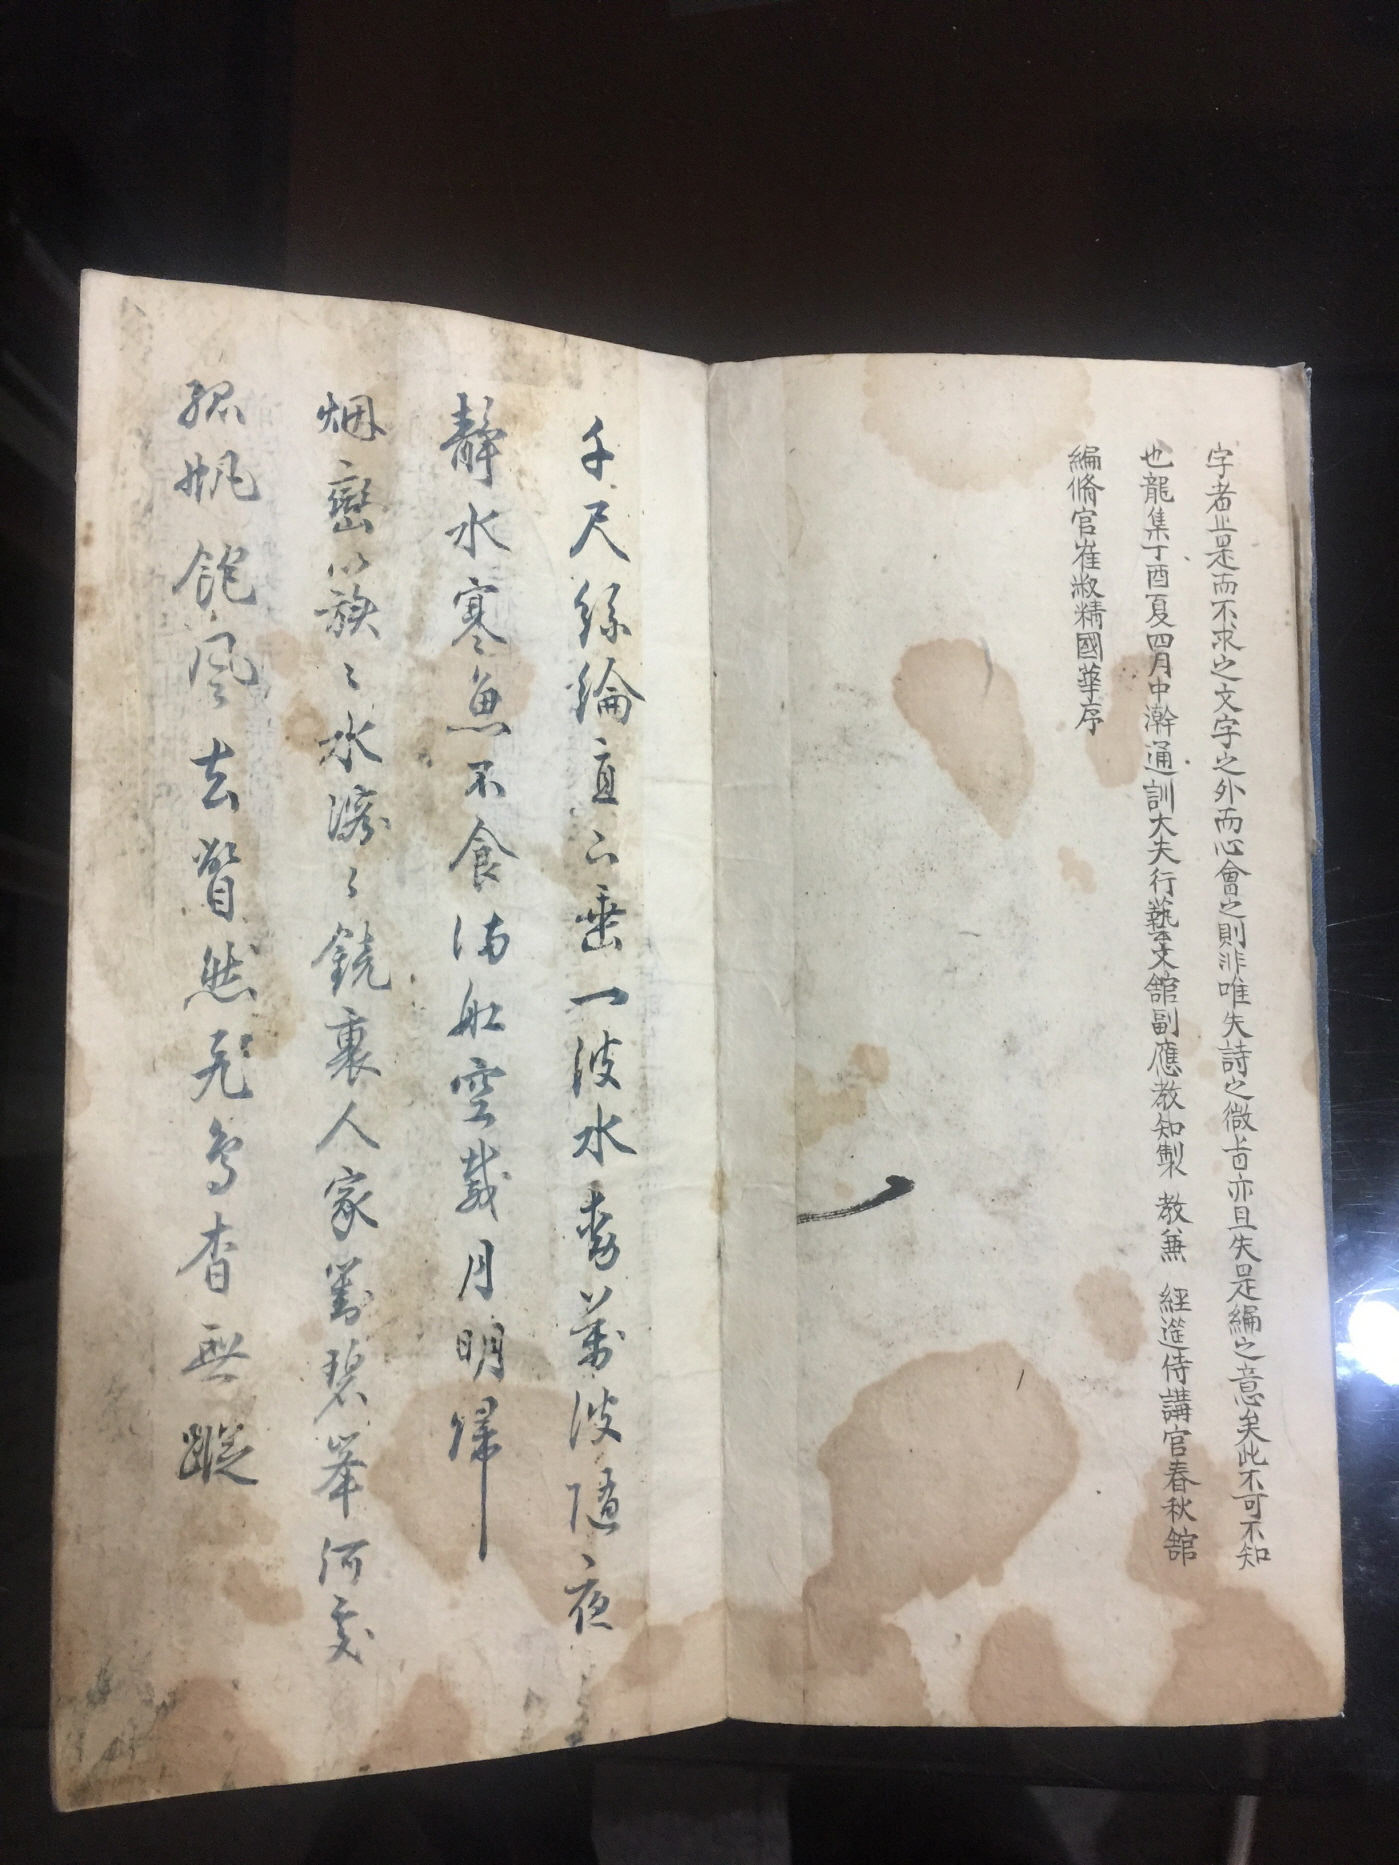 字者止是而不求之文字之外而心會之則非唯失詩之微旨亦且失是編之意矣此不可不知
也龍集丁酉夏四月中澣通訓大夫行藝文館副應教知製 教兼 經筵侍講官春秋館
編脩官崔淑精國華序
千尺絲綸直下垂一波水動萬波随夜
靜水寒魚不食満舡空載月明歸
烟巒簇〻水溶〻鏡裏人家對碧峯何處
孤帆飽風去瞥然飛鳥杳無蹤